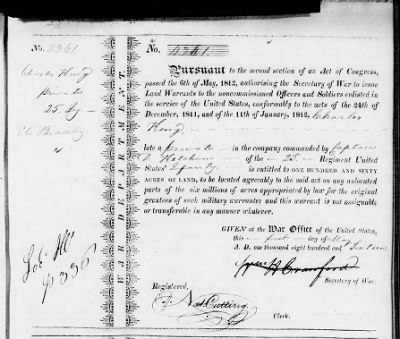 No. 4361
No. 4361
Charles King
Private
25 Inf
WAR DEPARTMENT.
Pursuant to the second section of an Act of Congress,
passed the 6th of May, 1812, authorising the Secretary of War to issue
Land Warrants to the noncommissioned Officers and Soldiers enlisted in
the service of the United States, conformably to the acts of the 24th of
December, 1811, and of the 11th of January, 1812, Charles
King
late a private in the company commanded by Captain
of the 25 Regiment United
States' Infantry is entitled to ONE HUNDRED AND SIXTY
ACRES OF LAND, to be located agreeably to the said act on any unlocated
parts of the six millions of acres appropriated by law for the original
grantees of such military warrants; and this warrant is not assignable
or transferable in any manner whatever.
GIVEN at the War Office of the United States,
this first day of May
A. D. one thousand eight hundred and
Wm H Crawford
Secretary of War.
Registered,
Nat Cutting
Clerk.
p 336